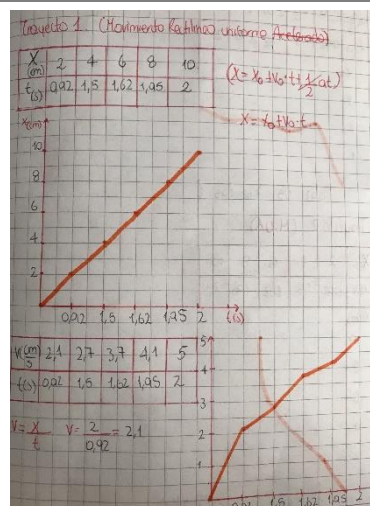 Trayecto 1. (Movimiento Rectilíneo uniforme Acelerado)
X (cm) 2 4 6 8 10
t (s) 0,92 1,5 1,62 1,95 2
(X = X₀ + V₀·t + 1/2 at)
X = X₀ + V₀·t
X(cm)
10
8
6
4
2
0,92 1,5 1,62 1,95 2 t(s)
V(cm/s) 2,1 2,7 3,7 4,1 5
t(s) 0,92 1,5 1,62 1,95 2
V = X/t V = 2/0,92 = 2,1
5
4
3
2
1
1,5 1,62 1,95 2